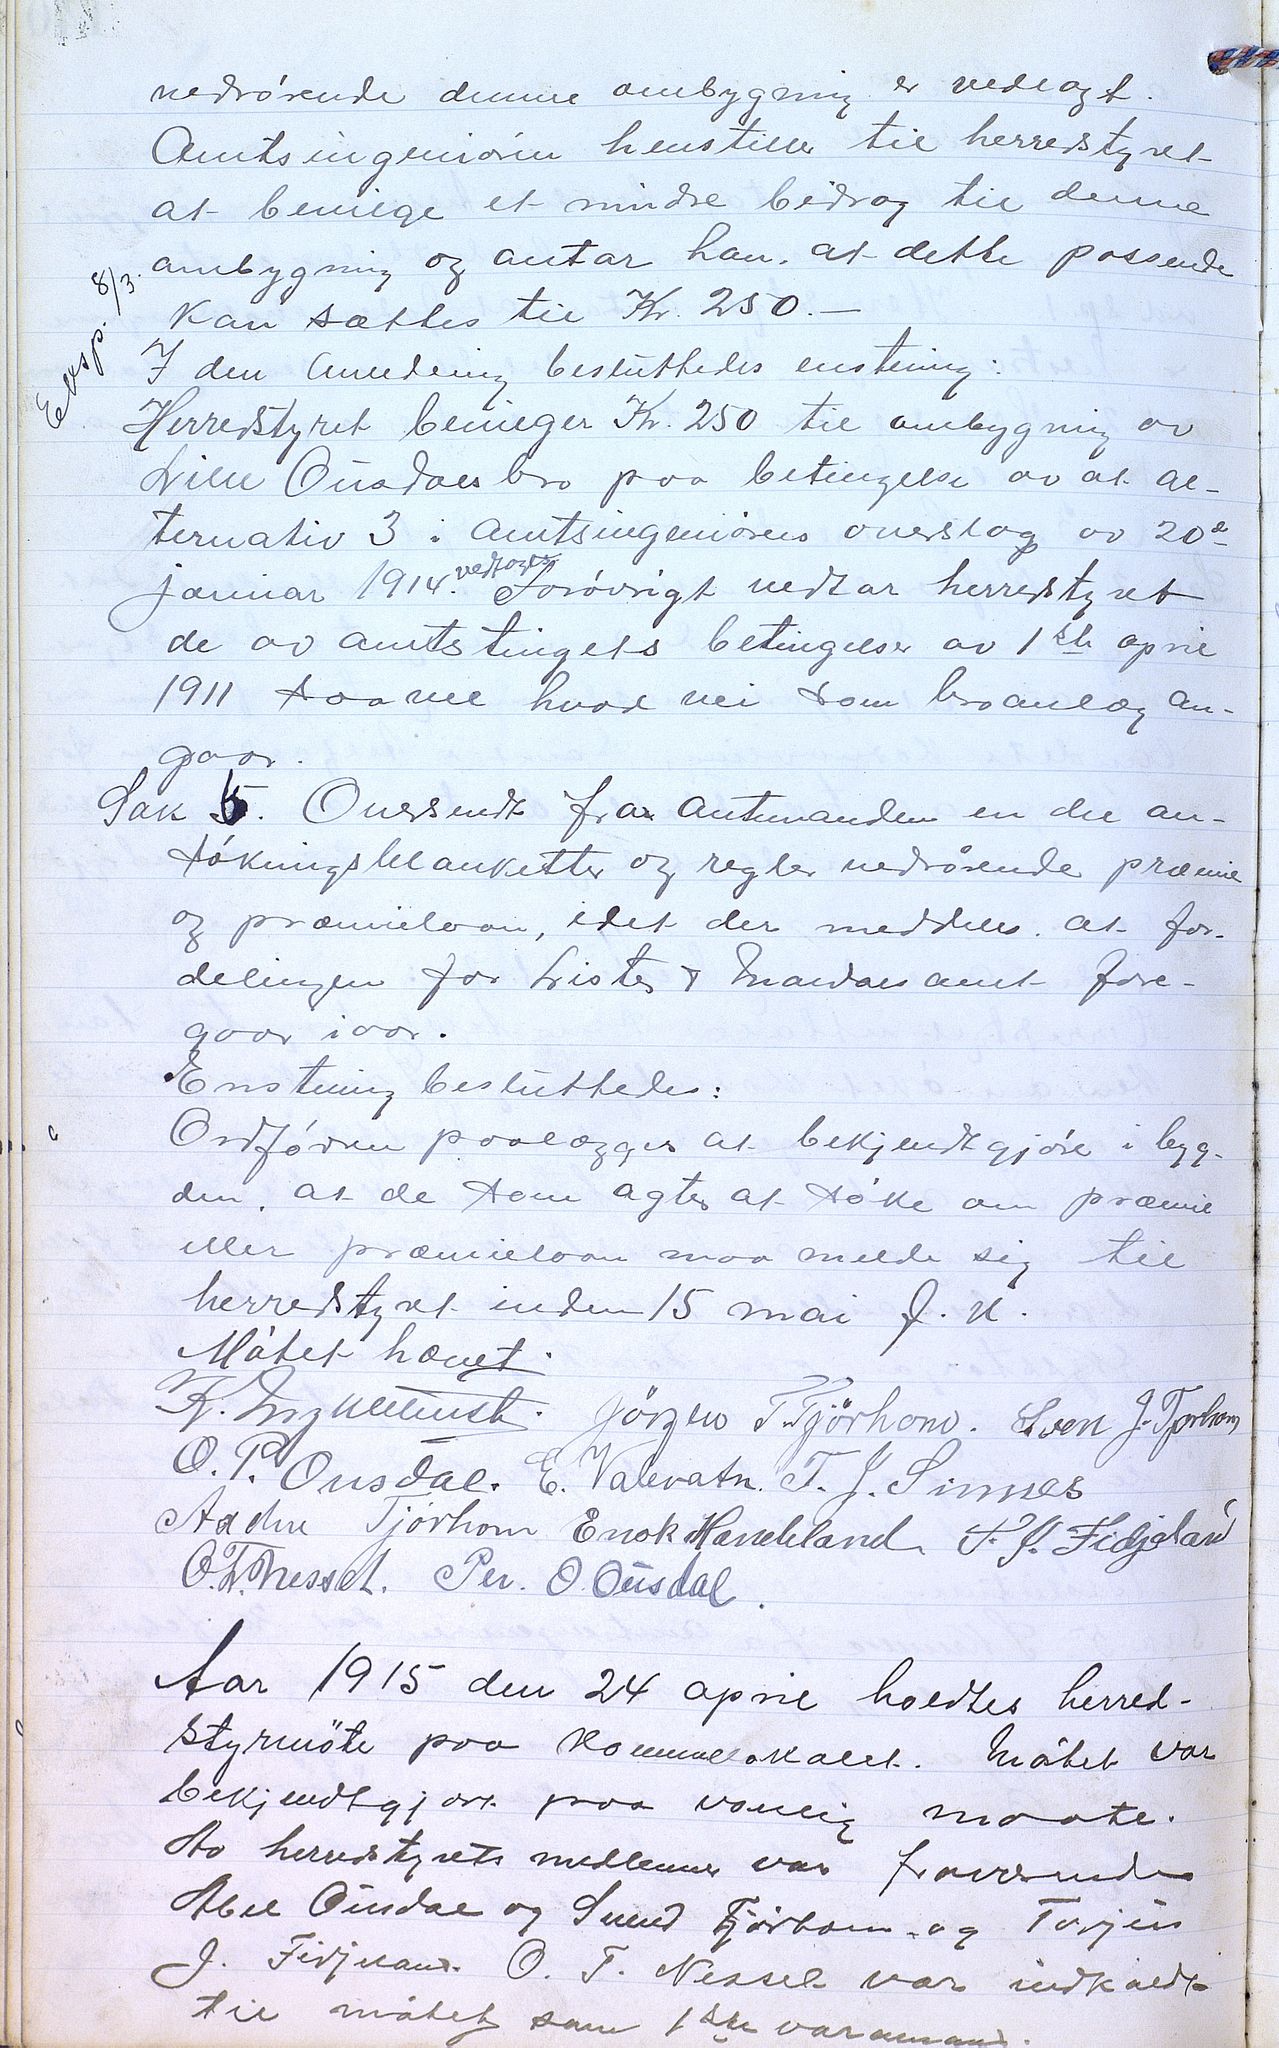 vedrørende denne ombygning er vedlagt.
Amtsingeniøren henstiller til herredstyret
at bevilge et mindre bidrag til denne
ombygning og antar han at dette passende
kan sættes til Kr. 250.—
Eksp. 8/3.
I den Anledning besluttedes enstemig:
Herredstyret bevilger Kr. 250 til ombygning av
Lille Ousdals bro paa betingelse av at al-
ternativ 3 i amtsingeniørens overslag av 20de
januar 1914 vedtages. Forøvrigt vedtar herredstyret
de av amtstingets betingelser av 1ste april
1911 saavel hvad vei som broanlæg an-
gaar.
Sak 5. Oversendt fra amtmanden en del an-
søkningsblanketter og regler vedrørende præmie
og præmielaan, idet der meddeles at for-
delingen for Lister & Mandals amt fore-
gaar iaar.
Enstemig besluttedes:
Ordføreren paalægges at bekjendtgjøre i byg-
den, at de som agter at søke om præmie
eller præmielaan maa melde sig til
herredstyret inden 15 mai f. k.
Møtet hævet.
K. Jørgen T. Tjørhom. Sven J. Tjørhom
O. P. Ousdal. E. Valevatn. T. J. Sinnes
Tjørhom Enok Haneland T. J. Fidjeland
O. T. Nesset. Per. O. Ousdal.
Aar 1915 den 24 april holdtes herred-
styrmöte paa Kommunelokalet. Møtet var
bekjendtgjort paa vanlig maate.
Av herredstyrets medlemmer var fraværende
Abel Ousdal og Svend Tjørhom og Torjus
J. Fidjeland. O. T. Nesset var indkaldt
til møtet som 1ste varamand.